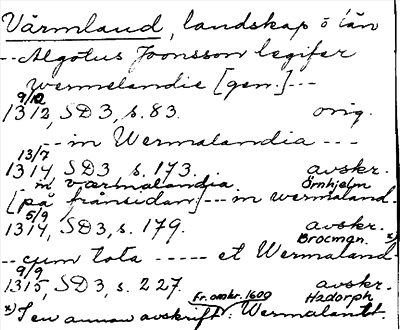 Värmland, landskap o län
-- Algotus Joonsson legifer
wermelandie [gen.] ---
9/12
1312, SD 3, s. 83. orig.
--- in Wermalandia ---
13/7
1314, SD3 s. 173. avskr.
- in værmalandia. Örnhjelm
[på frånsidan] --- in wermaland-
5/9
1314, SD 3, s. 179. avskr.
Brocman. x)
-- cum tota ----- et Wermaland-
9/9
1315, SD 3, s. 227. avskr.
Fr. omkr. 1600 Hadorph
x) I en annan avskrift: Wermalantt.